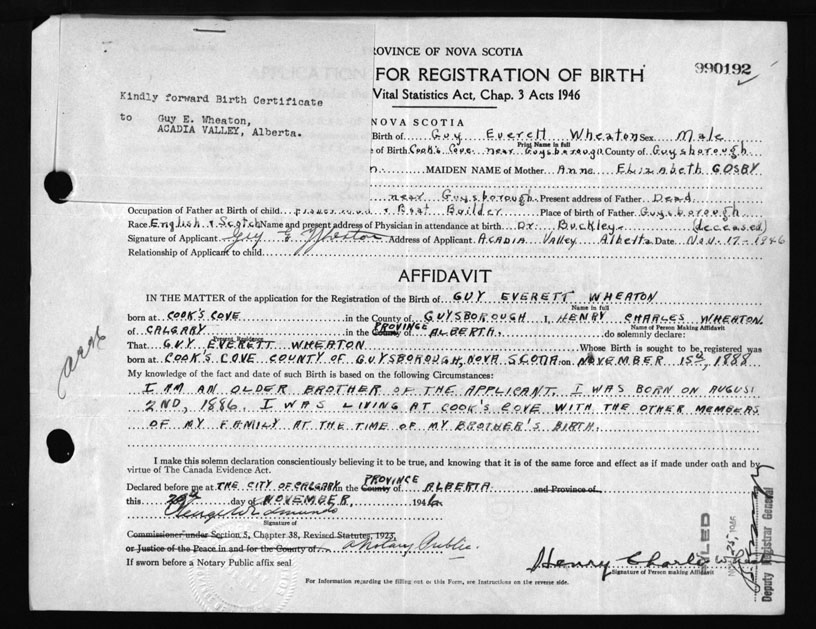 PROVINCE OF NOVA SCOTIA
APPLICATION FOR REGISTRATION OF BIRTH
990192
Vital Statistics Act, Chap. 3 Acts 1946
Kindly forward Birth Certificate
to Guy E. Wheaton,
ACADIA VALLEY, Alberta.
NOVA SCOTIA
Birth of Guy Everett Wheaton Sex Male
Print Name in full
of Birth Cook's Cove near Guysborough County of Guysborough
MAIDEN NAME of Mother Anna Elizabeth GOSBY
near Guysborough. Present address of Father Dead.
Occupation of Father at Birth of child & Boat Builder Place of birth of Father Guysborough
Race English & Scotch Name and present address of Physician in attendance at birth Dr. Buckley - (deceased)
Signature of Applicant Guy E Wheaton Address of Applicant Acadia Valley Alberta Date Nov. 17 - 1946
Relationship of Applicant to child
AFFIDAVIT
IN THE MATTER of the application for the Registration of the Birth of GUY EVERETT WHEATON
Name in full
born at COOK'S COVE in the County of GUYSBOROUGH I, HENRY CHARLES WHEATON
Name of Person Making Affidavit
of CALGARY in the County PROVINCE of ALBERTA. do solemnly declare:
Present Residence
That GUY EVERETT WHEATON Whose Birth is sought to be registered was
born at COOK'S COVE COUNTY OF GUYSBOROUGH, NOVA SCOTIA on NOVEMBER 15th, 1888
My knowledge of the fact and date of such Birth is based on the following Circumstances:
I AM AN OLDER BROTHER OF THE APPLICANT. I WAS BORN ON AUGUST
2ND, 1886. I WAS LIVING AT COOK'S COVE WITH THE OTHER MEMBERS
OF MY FAMILY AT THE TIME OF MY BROTHER'S BIRTH.
I make this solemn declaration conscientiously believing it to be true, and knowing that it is of the same force and effect as if made under oath and by
virtue of The Canada Evidence Act.
Declared before me at THE CITY OF CALGARY in the County PROVINCE of ALBERTA and Province of
this day of NOVEMBER, 1946
Signature of
Commissioner under Section 5, Chapter 38, Revised Statutes, 1923,
or Justice of the Peace in and for the County of a Notary Public.
If sworn before a Notary Public affix seal
Henry Charles
Signature of Person making Affidavit
Deputy Registrar General
For Information regarding the filling out of this Form, see Instructions on the reverse side.